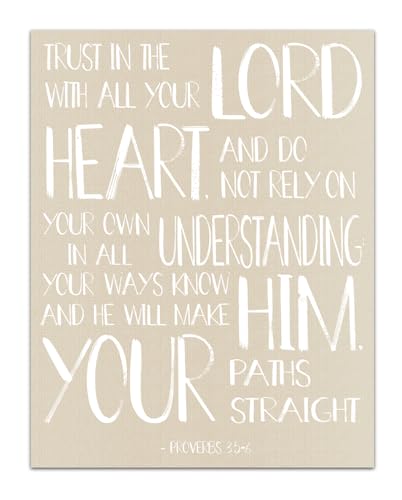 TRUST IN THE LORD
WITH ALL YOUR
HEART, AND DO
NOT RELY ON
YOUR OWN UNDERSTANDING;
IN ALL
YOUR WAYS KNOW HIM,
AND HE WILL MAKE
YOUR PATHS
STRAIGHT
- PROVERBS 3:5-6